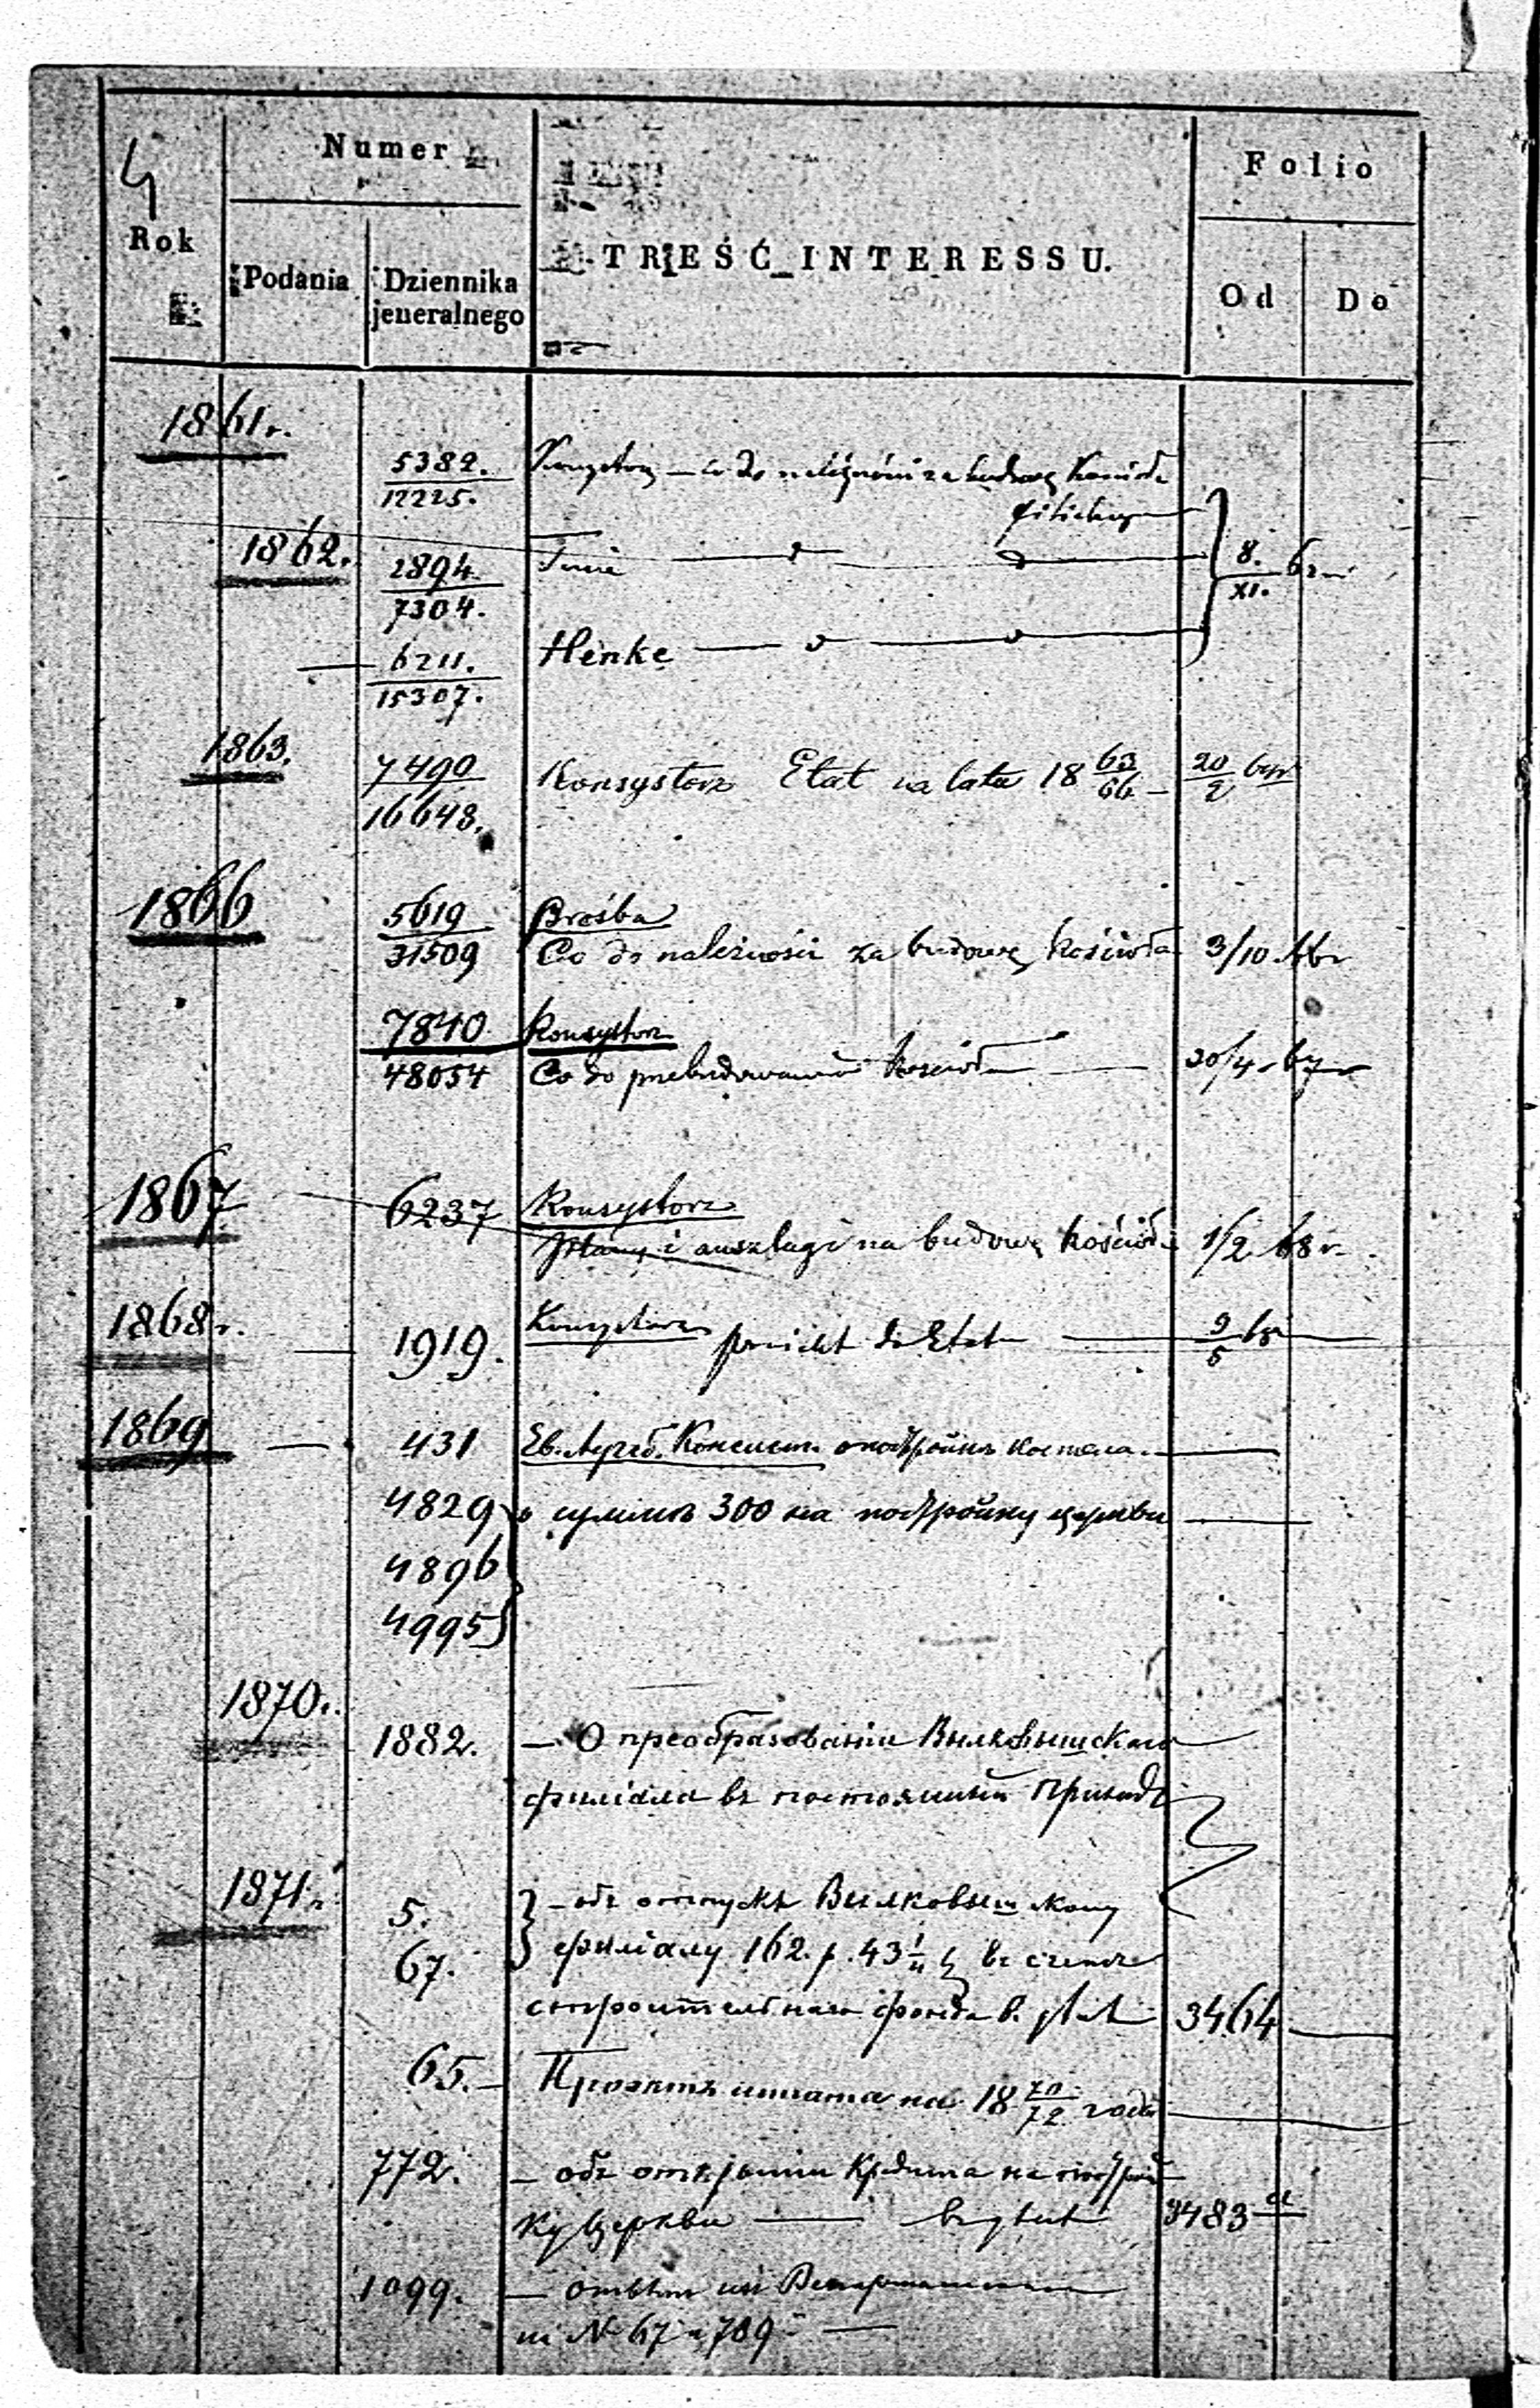 4
Numer
Folio
Rok
Podania
Dziennika
jeneralnego
TREŚĆ INTERESSU.
Od
Do
1861 r.
5382.
12225.
Konsystorz – co do należności za budowę Kościoła
filialnego
1862.
2894.
7304.
Tenże
8.
XI.
62
6211.
15307.
Henke
1863.
7490
16648.
Konsystorz Etat na lata 18 63/66 –
20/2 64r
1866
5619
31509
Prośba
Co do należności za budowę kościoła
3/10 66r
7840
48054
Konsystorz
Co do przebudowania kościoła
30/4 67r
1867
6237
Konsystorz
Plany i anszlagi na budowę kościoła
1/2 68 r.
1868 r.
1919.
Konsystorz projekt do Etat
9/5 68
1869
431
Ев. Аугсб. Консист. о постройкѣ костела
4829
о суммѣ 300 на постройку церкви
4896
4995
1870.
1882.
– О преобразованіи Вылковышскаго
филіала въ постоянный приходъ
1871 г.
5.
– объ отпускѣ Вылковышскому
67.
филіалу 162 р. 43 1/2 к въ счетъ
строительнаго фонда
3464
65. –
Проэктъ штата на 18 70/72 года
772.
– объ открытіи кредита на построй
ку церкви
3483
1099.
– отвѣтъ
№ 67 и 789